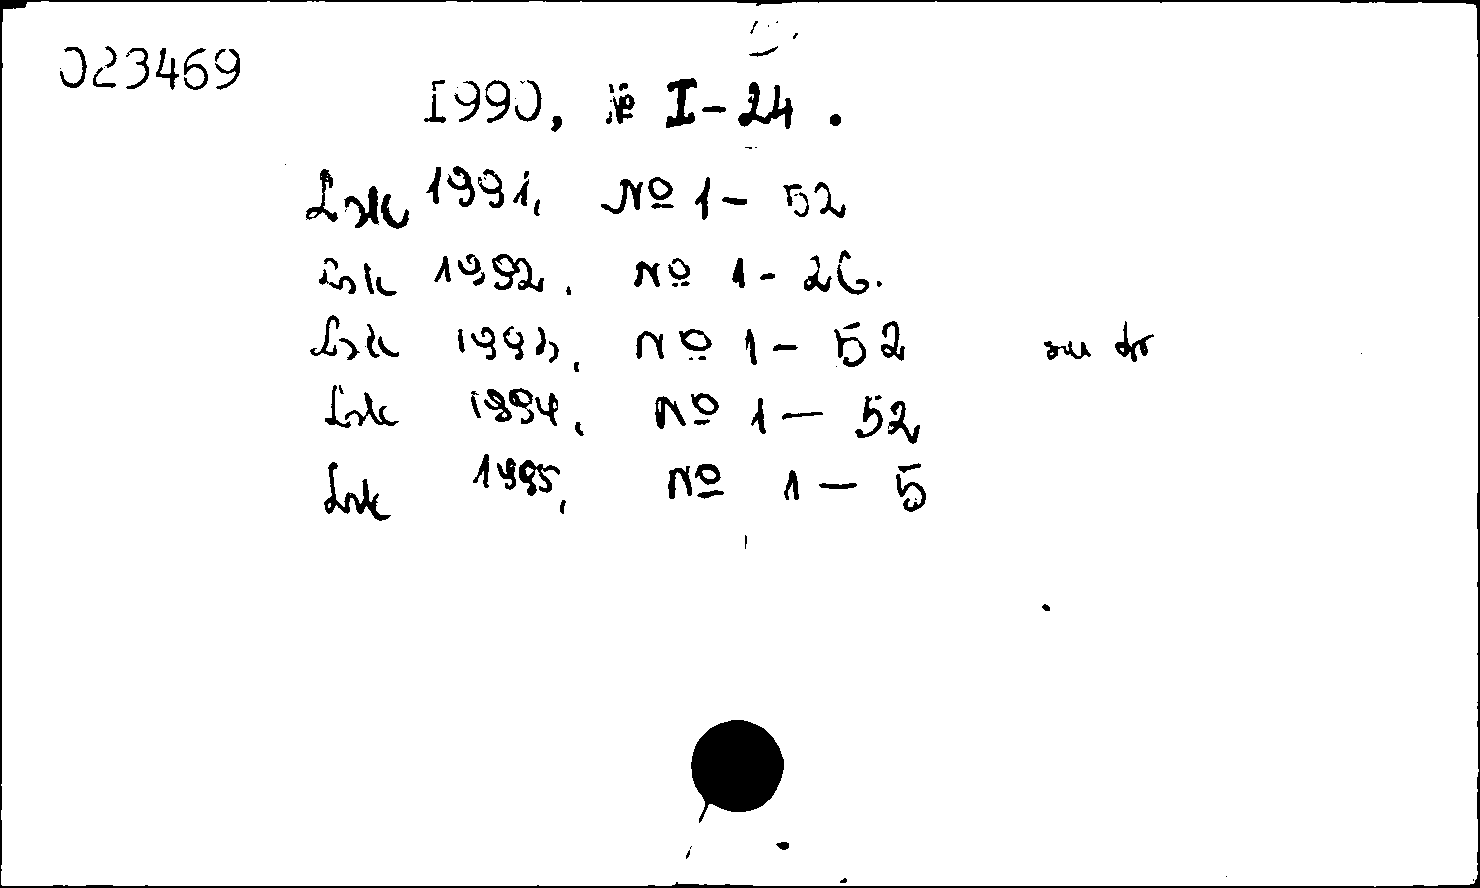 023469
I990, № I-24.
1991, № 1 - 52
1992, № 1 - 26.
1993, № 1 - 52
1994, № 1 - 52
1995, № 1 - 5